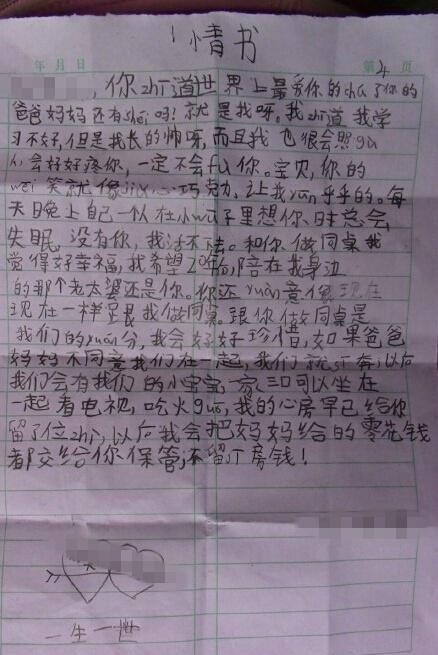 情书
年 月 日 第4页
,你zhī道世界上最爱你的chú了你的
爸爸妈妈还有shéi吗!就是我呀。我zhī道我学
习不好,但是我长的帅呀,而且我也很会照gù
人,会好好疼你,一定不会fù你。宝贝,你的
wēi笑就像 心巧克力,让我yūn乎乎的。每
天晚上自己一人在小wū子里想你,时总会
失眠,没有你,我活不下去。和你做同桌我
觉得好幸福,我希望20年后,陪在我身边
的那个老太婆还是你。你还yuàn意像现在
现在一样至 我做同桌。跟你做同桌是
我们的yuán分,我会好好珍惜,如果爸爸
妈妈不同意我们在一起,我们就 奔,以后
我们会有我们的小宝宝,一家三口可以坐在
一起看电视,吃火guō,我的心房早已给你
留了位zhì,以后我会把妈妈给的零花钱
都交给你保管,不留 房钱!
一生一世